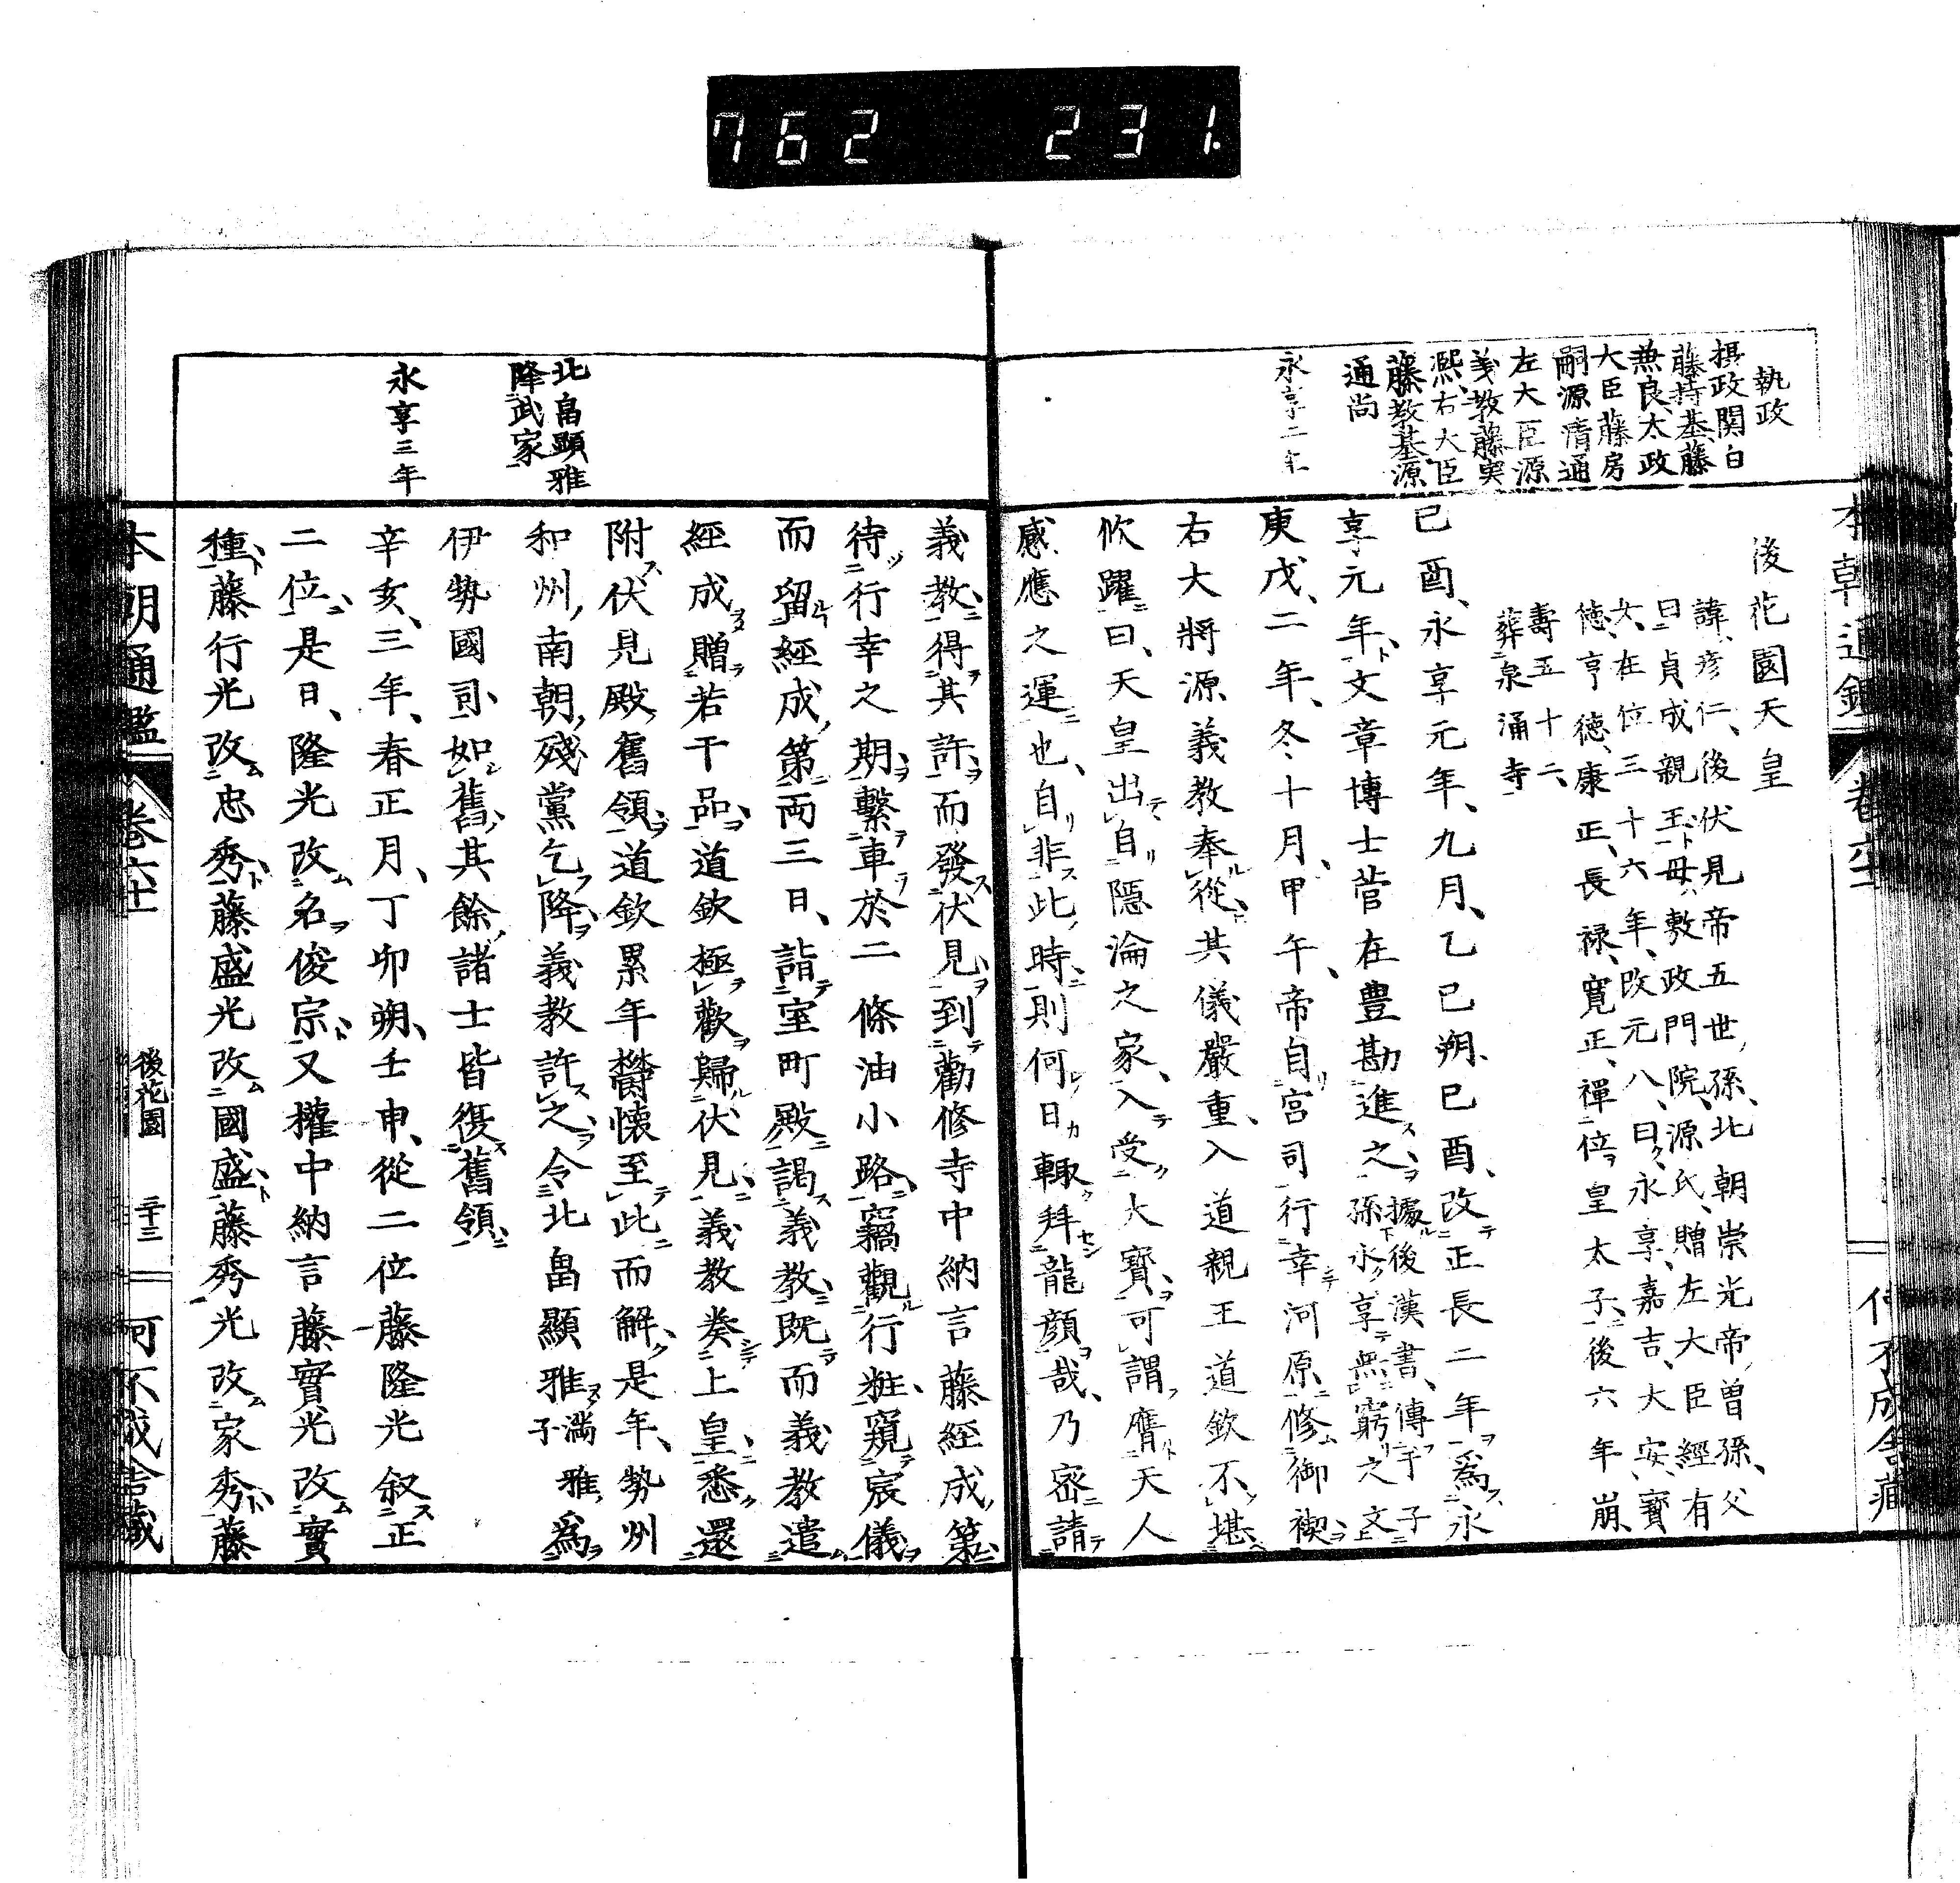 762 231.
執政
摂政関白
藤持基藤
兼良、太政
大臣藤房
嗣源清通
左大臣源
義教藤実
凞、右大臣
藤教基源
通尚
永享二年
後花園天皇
諱彦仁、後伏見帝五世孫、北朝崇光帝曽孫、父
曰貞成親王、母敷政門院、源氏、贈左大臣經有
女、在位三十六年、改元八、曰永享、嘉吉、大安、寳
徳、亨徳、康正、長禄、寛正、禪位皇太子、後六年崩、
壽五十二、
葬泉涌寺
己酉、永享元年、九月、乙巳朔、己酉、改正長二年爲永
享元年、文章博士菅在豊勘進之、據後漢書、傳于子孫永享無窮之文
庚戌、二年、冬十月、甲午、帝自宮司行幸河原修御禊
右大將源義教奉從其儀嚴重、入道親王道欽不堪
忻躍曰、天皇出自隱淪之家、入受大寳、可謂膺天人
感應之運也、自非此時則何日輙拜龍顏哉、乃密請
北畠顯雅
降武家
永享三年
義教得其許而發伏見到勸修寺中納言藤經成第
待行幸之期、繋車於二條油小路、竊觀行粧、窺宸儀
而留經成第兩三日、詣室町殿謁義教既而義教遣
經成贈若干品道欽極歡歸伏見義教奏上皇悉還
附伏見殿舊領道欽累年欝懷至此而解、是年、勢州
和州南朝殘黨乞降義教許之令北畠顯雅滿雅子爲
伊勢國司如舊其餘諸士皆復舊領
辛亥、三年、春正月、丁卯朔、壬申、從二位藤隆光叙正
二位、是日、隆光改名俊宗、又權中納言藤實光改實
種藤行光改忠秀藤盛光改國盛藤秀光改家秀藤
本朝通鑑 卷六十一 後花園 二十三